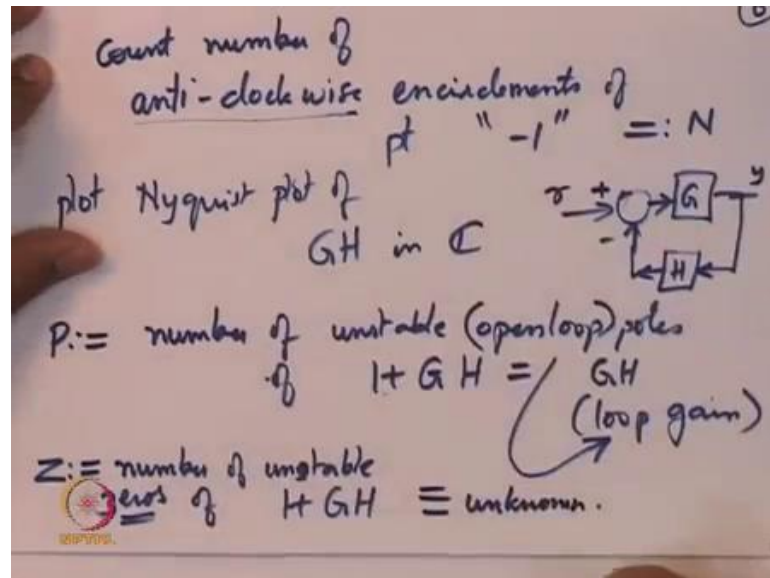 6
Count number of
anti-clockwise encirclements of
pt "-1" =: N
plot Nyquist plot of
GH in ℂ
r + G y
- H
P:= number of unstable (openloop) poles
of 1+GH = GH
(loop gain)
Z:= number of unstable
zeros of 1+GH ≡ unknown.
NPTEL